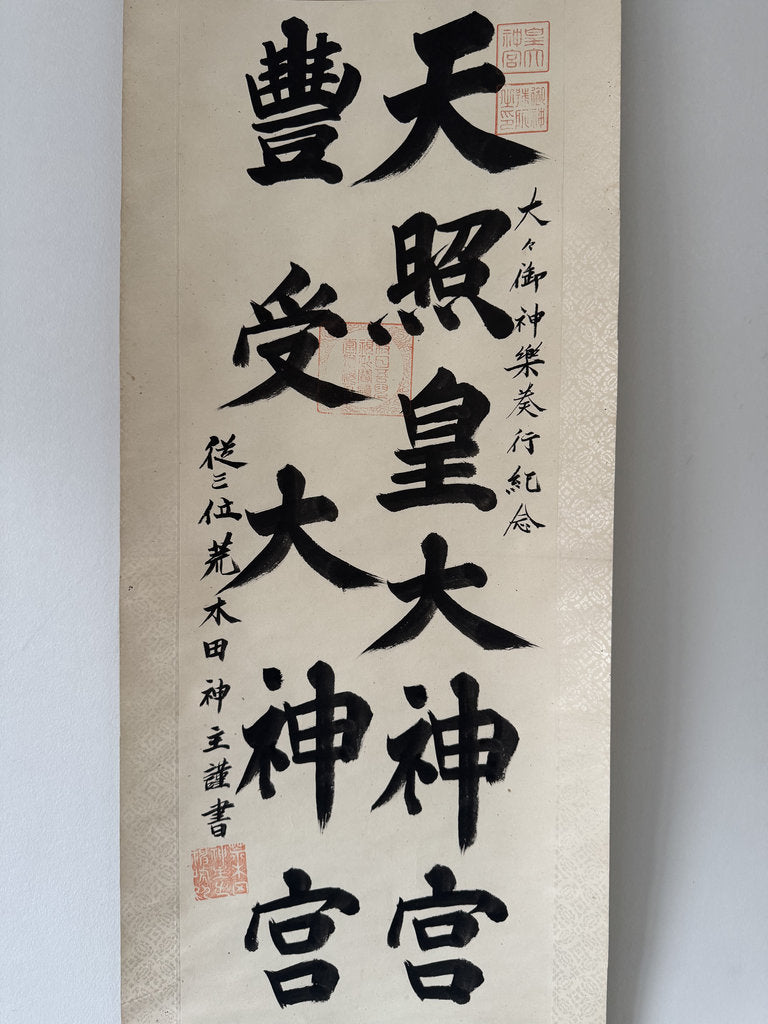 大々御神樂奏行紀念
天照皇大神宮
豐受大神宮
從三位荒木田神主謹書
皇大神宮